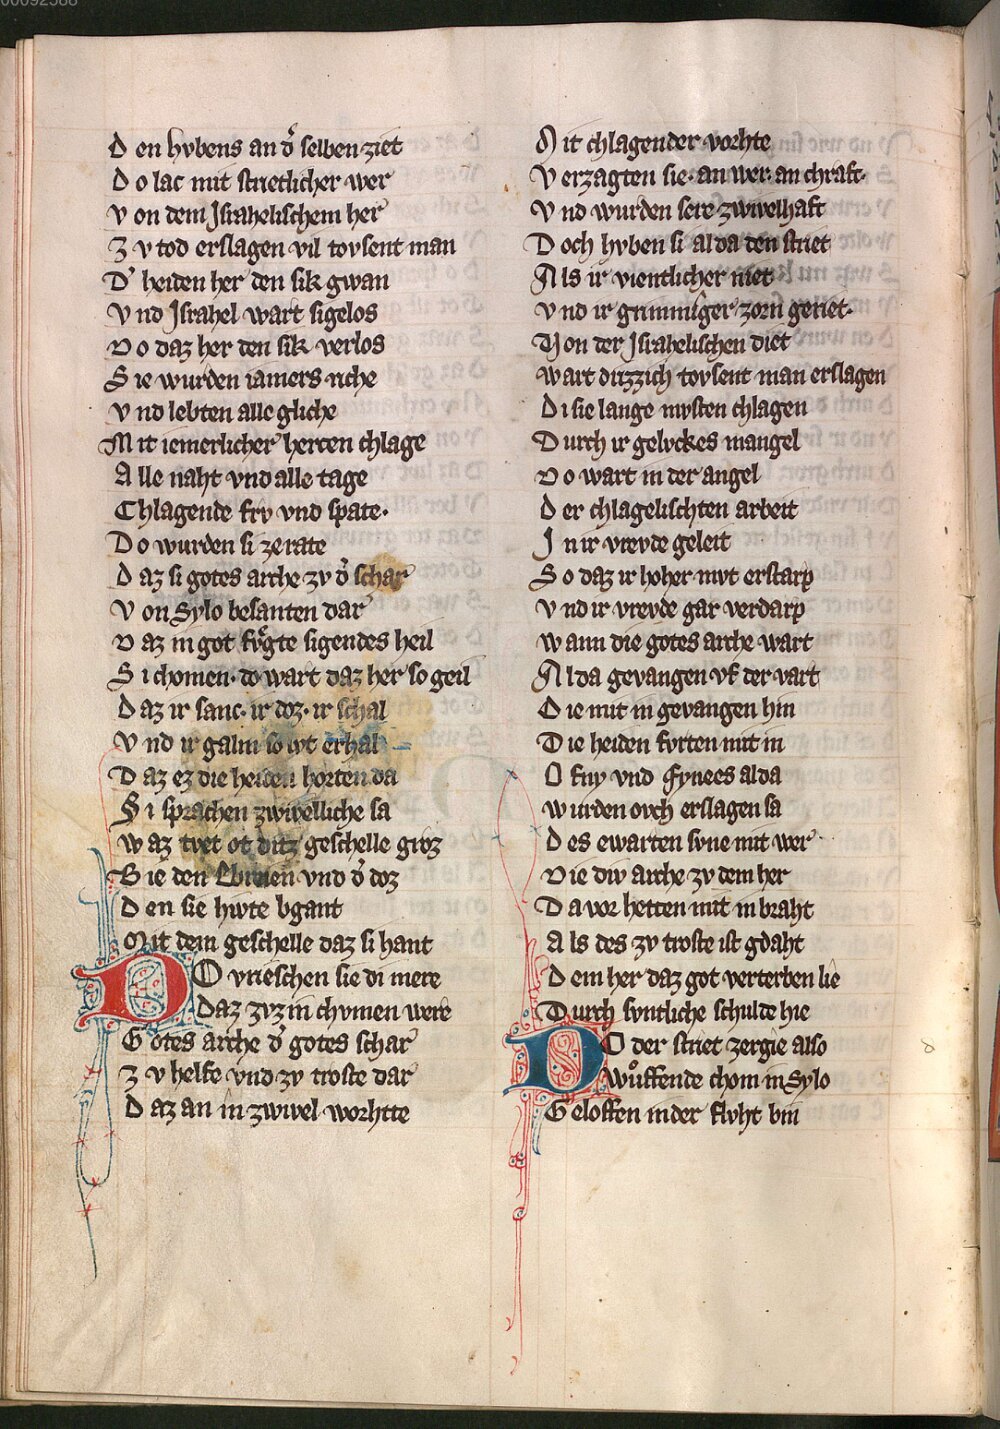 00092588
D en hvbens an d̾ selben ziet
D o lac mit strietlicher wer
V on dem Jsrahelischem her
Z v tod erslagen vil tovsent man
D̾ heiden her den sik gwan
V nd Jsrahel wart sigelos
D o daz her den sik verlos
S ie wurden iamers riche
V nd lebten alle gliche
M it iemerlicher herten chlage
A lle naht vnd alle tage
C hlagende frv vnd spate·
D o wurden si ze rate
D az si gotes arche zv d̾ schar
V on Sylo besanten dar
D az in got fvͤgte sigendes heil
S i chomen· do wart daz her so geil
D az ir sanc· ir doz· ir schal
V nd ir galm so wt erhal
D az ez die heiden horten da
S i sprachen zwivelliche sa
W az tvet ot ditz geschelle groz
B ie den Ebreien vnd d̾ doz
D en sie hivte bgant
M it dem geschelle daz si hant
D O vrieschen sie di mere
Daz zvz in chvmen were
G otes arche d̾ gotes schar
Z v helfe vnd zv troste dar
D az an in zwivel worhtte
M it chlagender vorhte
V erzagten sie· an wer· an chraft·
V nd wurden sere zwivelhaft
D och hvben si al da den striet
A ls ir vientlicher niet
V nd ir grimmiger zorn geriet·
V on der Jsrahelischen diet
W art drizzich tovsent man erslagen
D i sie lange mvsten chlagen
D urch ir gelvckes mangel
D o wart in der angel
D er chlagelischten arbeit
J n ir vrevde geleit
S o daz ir hoher mvt erstarp
V nd ir vrevde gar verdarp
W ann die gotes arche wart
A l da gevangen vf der vart
D ie mit in gevangen hin
D ie heiden fvrten mit in
O fny vnd fynees alda
W urden ovch erslagen sa
D es ewarten svne mit wer
D ie div arche zv dem her
D a vor hetten mit in braht
A ls des zv troste ist gdaht
D em her daz got verterben lie
D urch svntliche schulde hie
D O der striet zergie also
Wuͦffende chom in Sylo
G eloffen in der flvht bin